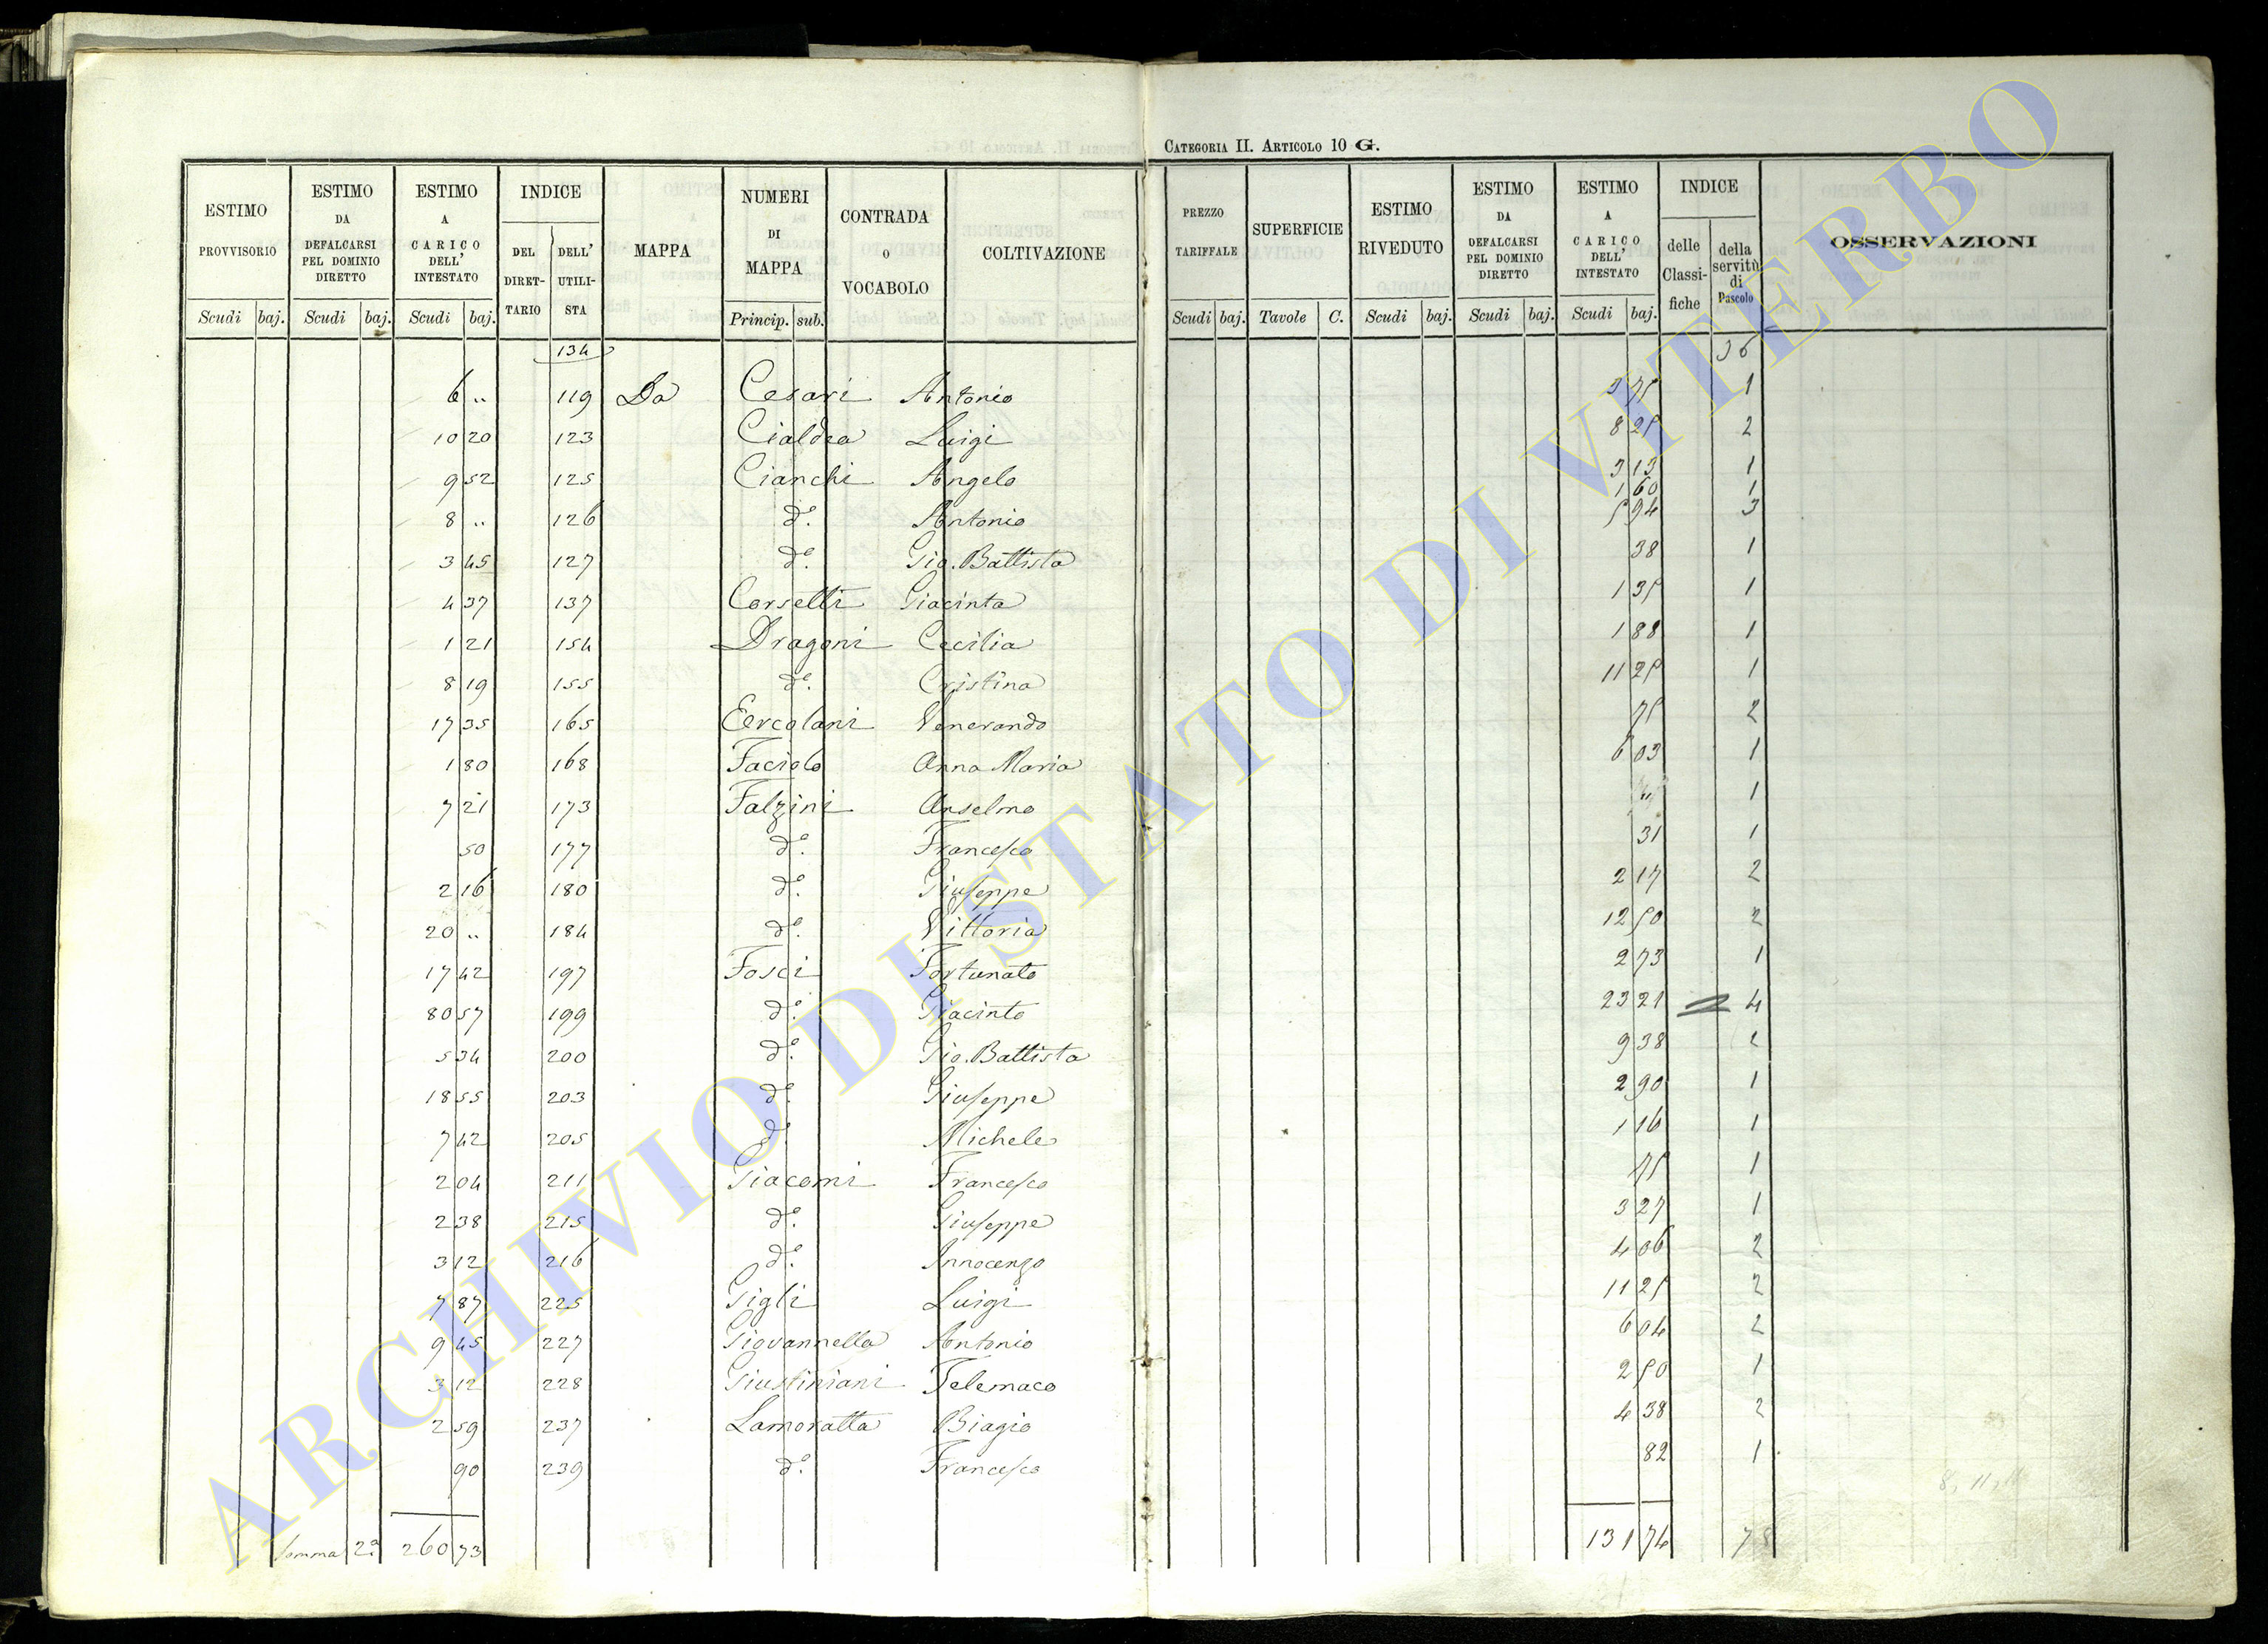 CATEGORIA II. ARTICOLO 10 G.
ESTIMO PROVVISORIO
ESTIMO DA DEFALCARSI PEL DOMINIO DIRETTO
ESTIMO A CARICO DELL' INTESTATO
INDICE
DEL DIRETTARIO
DELL' UTILISTA
MAPPA
NUMERI DI MAPPA
CONTRADA O VOCABOLO
COLTIVAZIONE
PREZZO TARIFFALE
SUPERFICIE
ESTIMO RIVEDUTO
ESTIMO DA DEFALCARSI PEL DOMINIO DIRETTO
ESTIMO A CARICO DELL' INTESTATO
INDICE
delle Classifiche
della servitù di Pascolo
OSSERVAZIONI
Scudi baj. Scudi baj. Scudi baj. Princip. sub. Scudi baj. Tavole C. Scudi baj. Scudi baj. Scudi baj.
134 36
6 „ 119 Da Cesari Antonio 3 75 1
10 20 123 Cialdea Luigi 8 25 2
9 52 125 Cianchi Angelo 3 13 1
1 60 1
8 „ 126 d.º Antonio 5 94 3
3 45 127 d.º Gio. Battista 38 1
4 37 137 Corselli Giacinta 1 35 1
1 21 154 Dragoni Cecilia 1 88 1
8 19 155 d.º Cristina 11 25 1
17 35 165 Eercolani Venerando 75 2
1 80 168 Faciolo Anna Maria 6 03 1
7 21 173 Falzini Anselmo „ 1
50 177 d.º Francesco 31 1
2 16 180 d.º Giuseppe 2 17 2
20 „ 184 d.º Vittoria 12 50 2
17 42 197 Fosci Fortunato 2 73 1
80 57 199 d.º Giacinto 23 21 4
5 34 200 d.º Gio. Battista 9 38
18 55 203 d.º Giuseppe 2 90 1
7 42 205 d.º Michele 1 16 1
2 04 211 Giacomi Francesco 75 1
2 38 215 d.º Giuseppe 3 27 1
3 12 216 d.º Innocenzo 4 06 2
7 87 225 Gigli Luigi 11 25 2
9 45 227 Giovannella Antonio 6 04 2
3 12 228 Giustiniani Telemaco 2 50 1
2 59 237 Lamoratta Biagio 4 38 2
90 239 d.º Francesco 82 1
Somma 2ª 260 73 131 74 78
ARCHIVIO DI STATO DI VITERBO